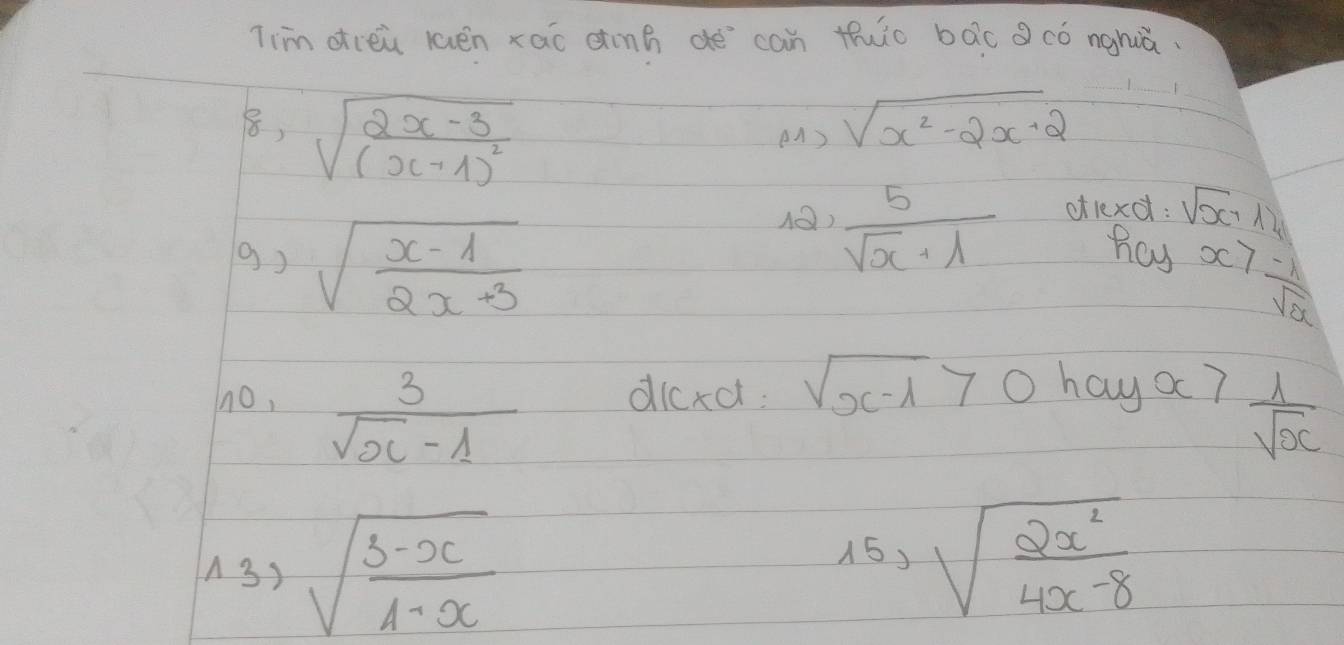 Tìm điều kiện xác định để căn thức bậc 2 có nghĩa.
8, √((2x-3)/(x+1)²)
11) √(x²-2x+2)
9) √((x-1)/(2x+3))
12, 5/(√x+1) đkxđ: √x+1
hay x > -1/√x
10, 3/(√x-1) đkxđ: √(x-1) > 0 hay x > 1/√x
13) √((3-x)/(1+x))
15) √(2x²/(4x-8))